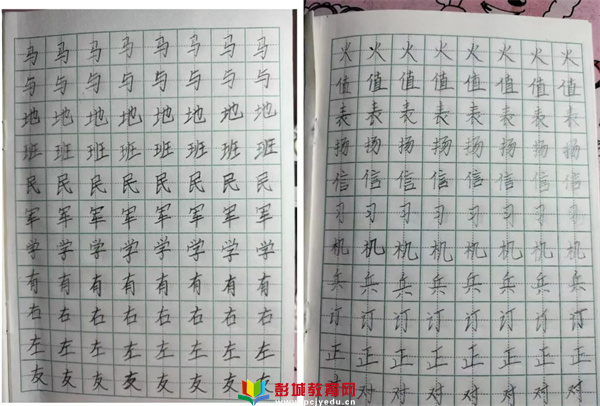 马 马 马 马 马 马 马 马
与 与 与 与 与 与 与 与
地 地 地 地 地 地 地 地
班 班 班 班 班 班 班 班
民 民 民 民 民 民 民 民
军 军 军 军 军 军 军 军
学 学 学 学 学 学 学 学
有 有 有 有 有 有 有 有
右 右 右 右 右 右 右 右
左 左 左 左 左 左 左 左
友 友 友 友 友 友 友 友
火 火 火 火 火 火 火 火
值 值 值 值 值 值 值 值
表 表 表 表 表 表 表 表
扬 扬 扬 扬 扬 扬 扬 扬
信 信 信 信 信 信 信 信
习 习 习 习 习 习 习 习
机 机 机 机 机 机 机 机
兵 兵 兵 兵 兵 兵 兵 兵
订 订 订 订 订 订 订 订
正 正 正 正 正 正 正 正
对 对 对 对 对 对 对
彭城教育网
www.pcjyedu.cn